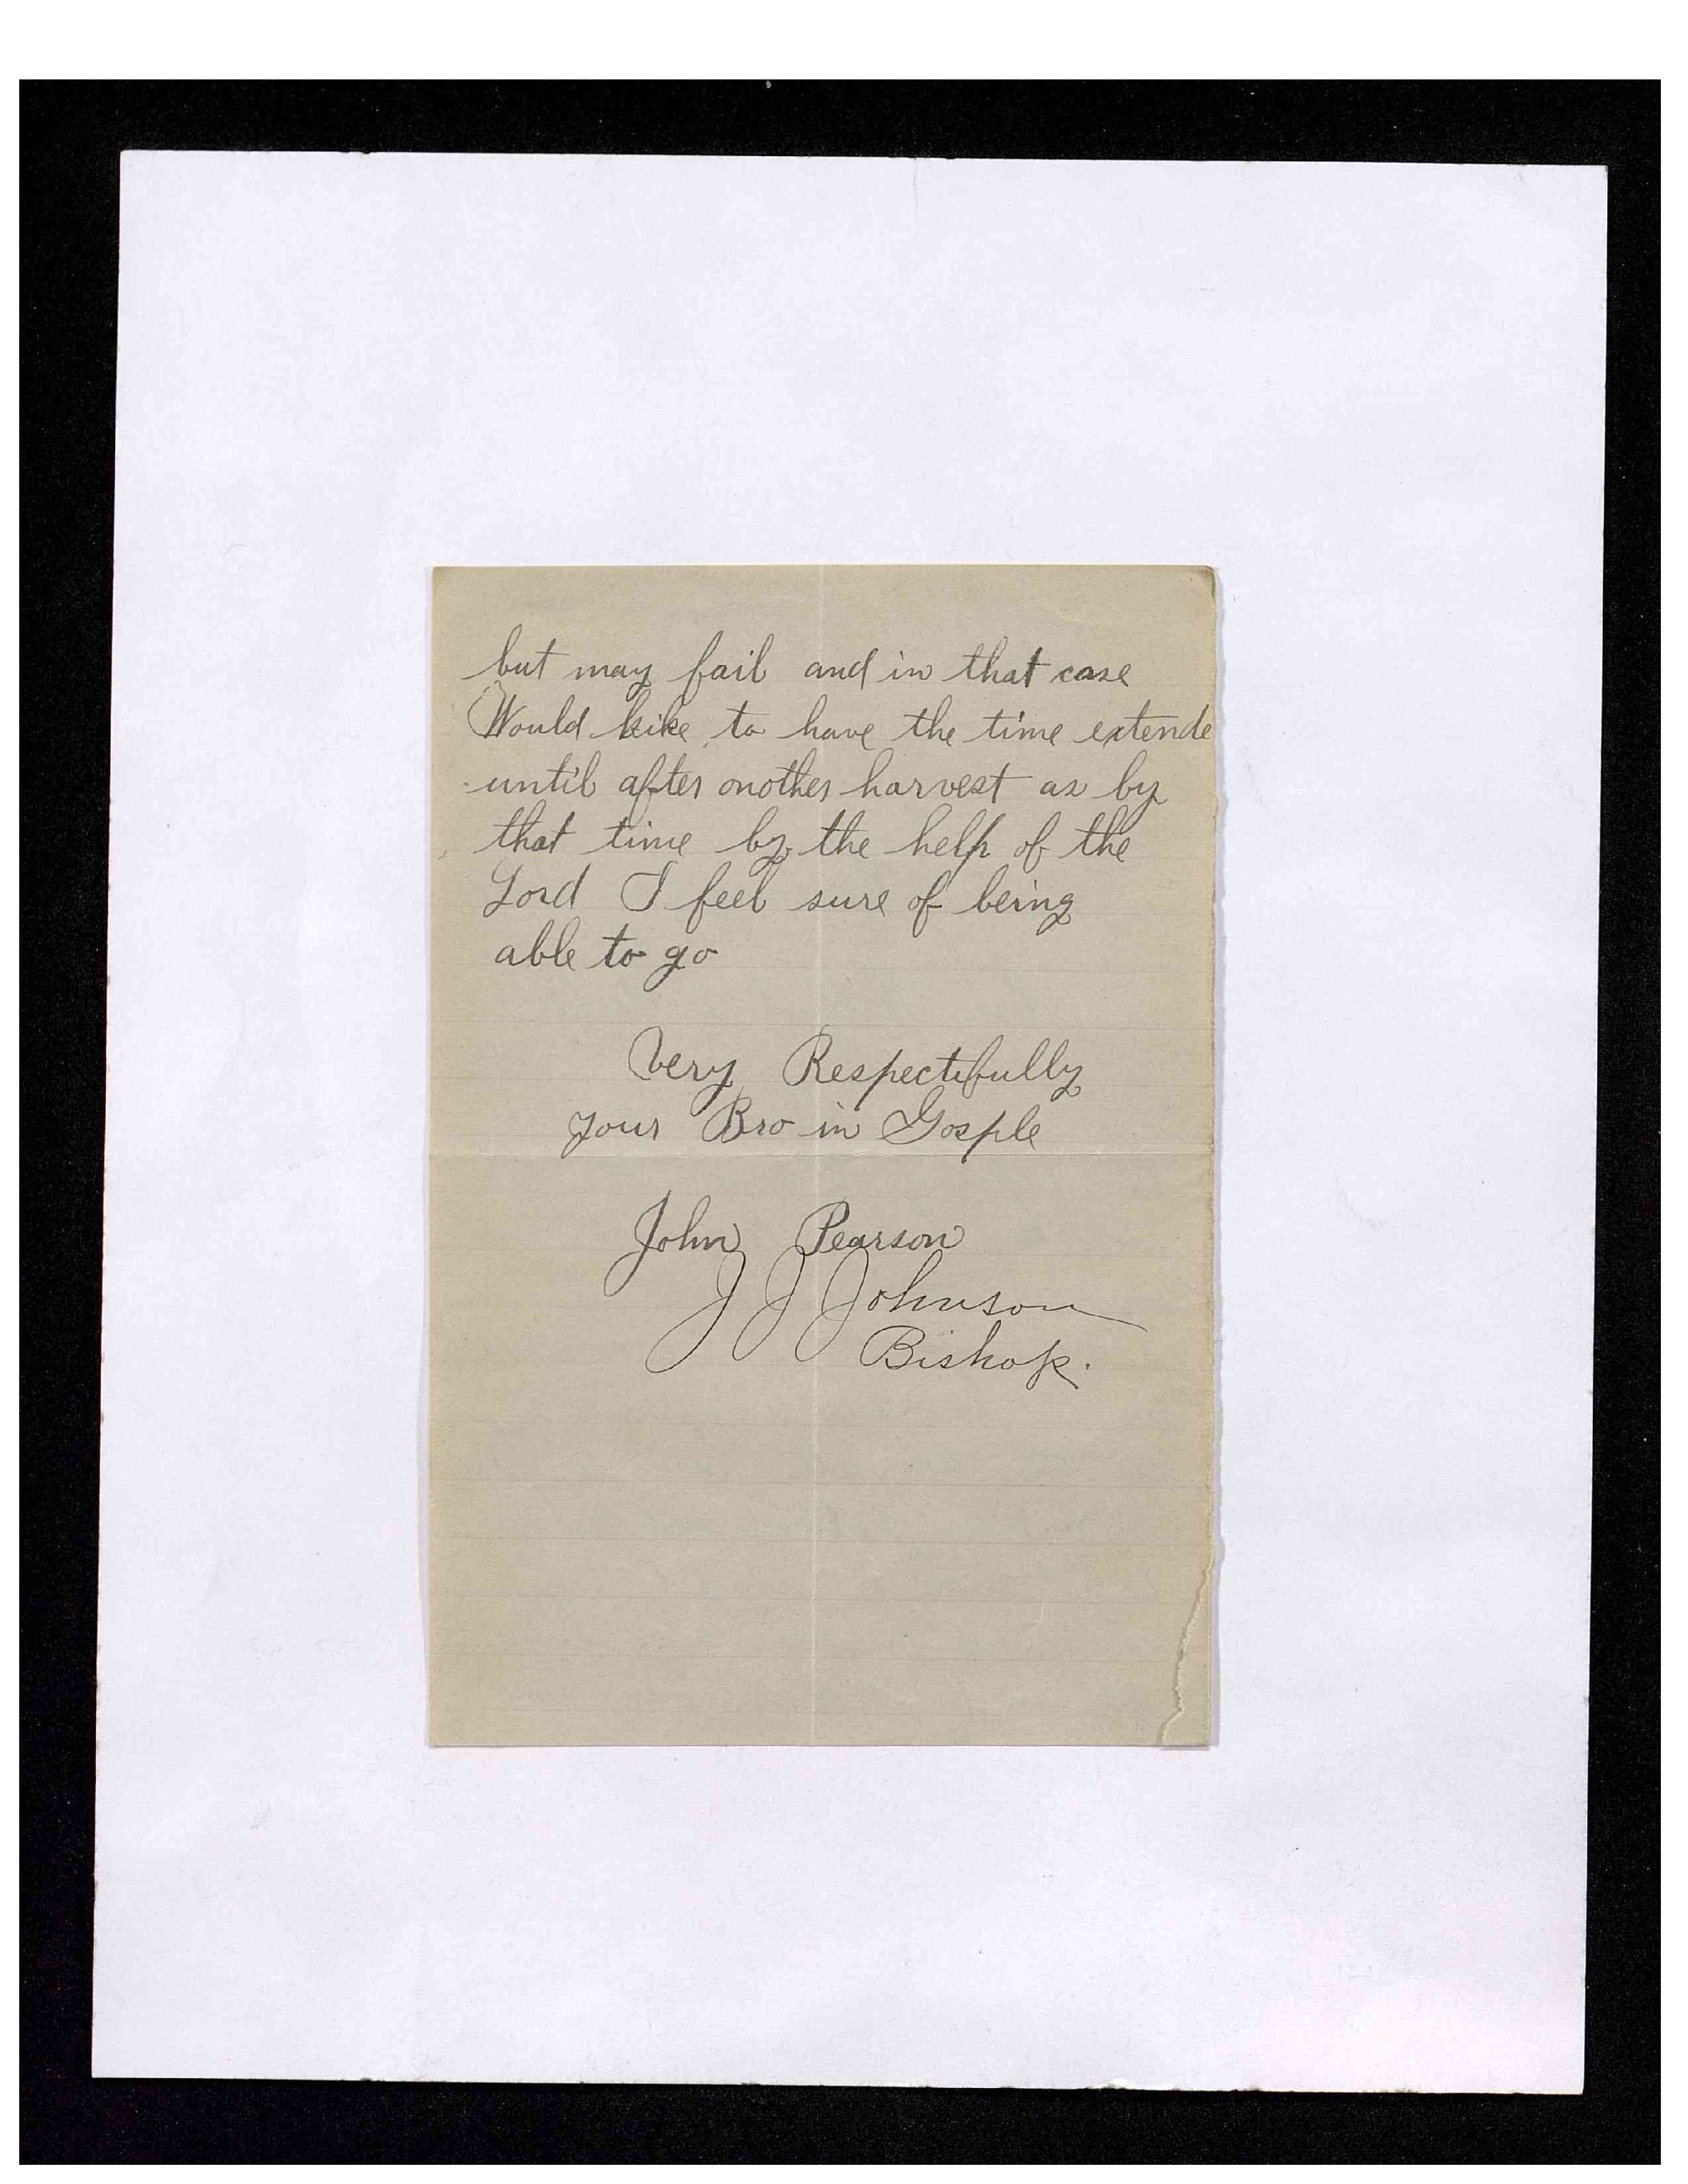 but may fail and in that case
Would like to have the time extende
until after onother harvest as by
that time by the help of the
Lord I feel sure of being
able to go
Very Respectifully
your Bro in Gosple
John Pearson
J J Johnson
Bishop.